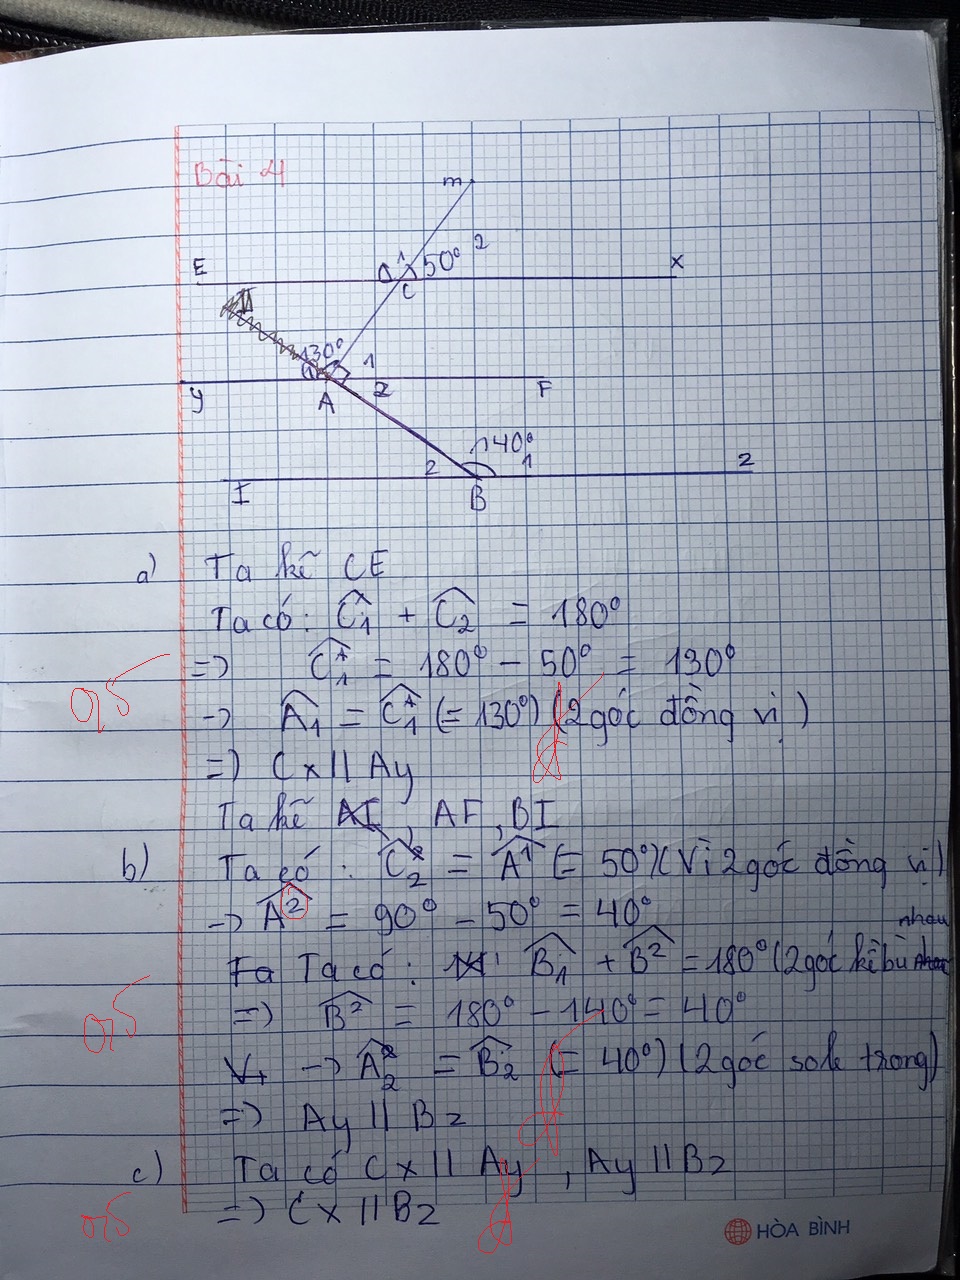 Bài 4
m
E
1
50°
2
x
C
130°
1
y
A
2
F
140°
2
1
2
I
B
a) Ta kẽ CE
Ta có: C1 + C2 = 180°
=> C1 = 180° - 50° = 130°
0,5
-> A1 = C1 (= 130°) (2 góc đồng vị)
=> Cx // Ay
Ta kẽ AI, AF, BI
b) Ta có: C2 = A1 (= 50°) (Vì 2 góc đồng vị)
-> A2 = 90° - 50° = 40°
nhau
Ta có: B1 + B2 = 180° (2 góc kề bù
=> B2 = 180° - 140° = 40°
0,5
-> A2 = B2 (= 40°) (2 góc sole trong)
=> Ay // B2
c) Ta có Cx // Ay, Ay // B2
=> Cx // B2
0,5
HÒA BÌNH